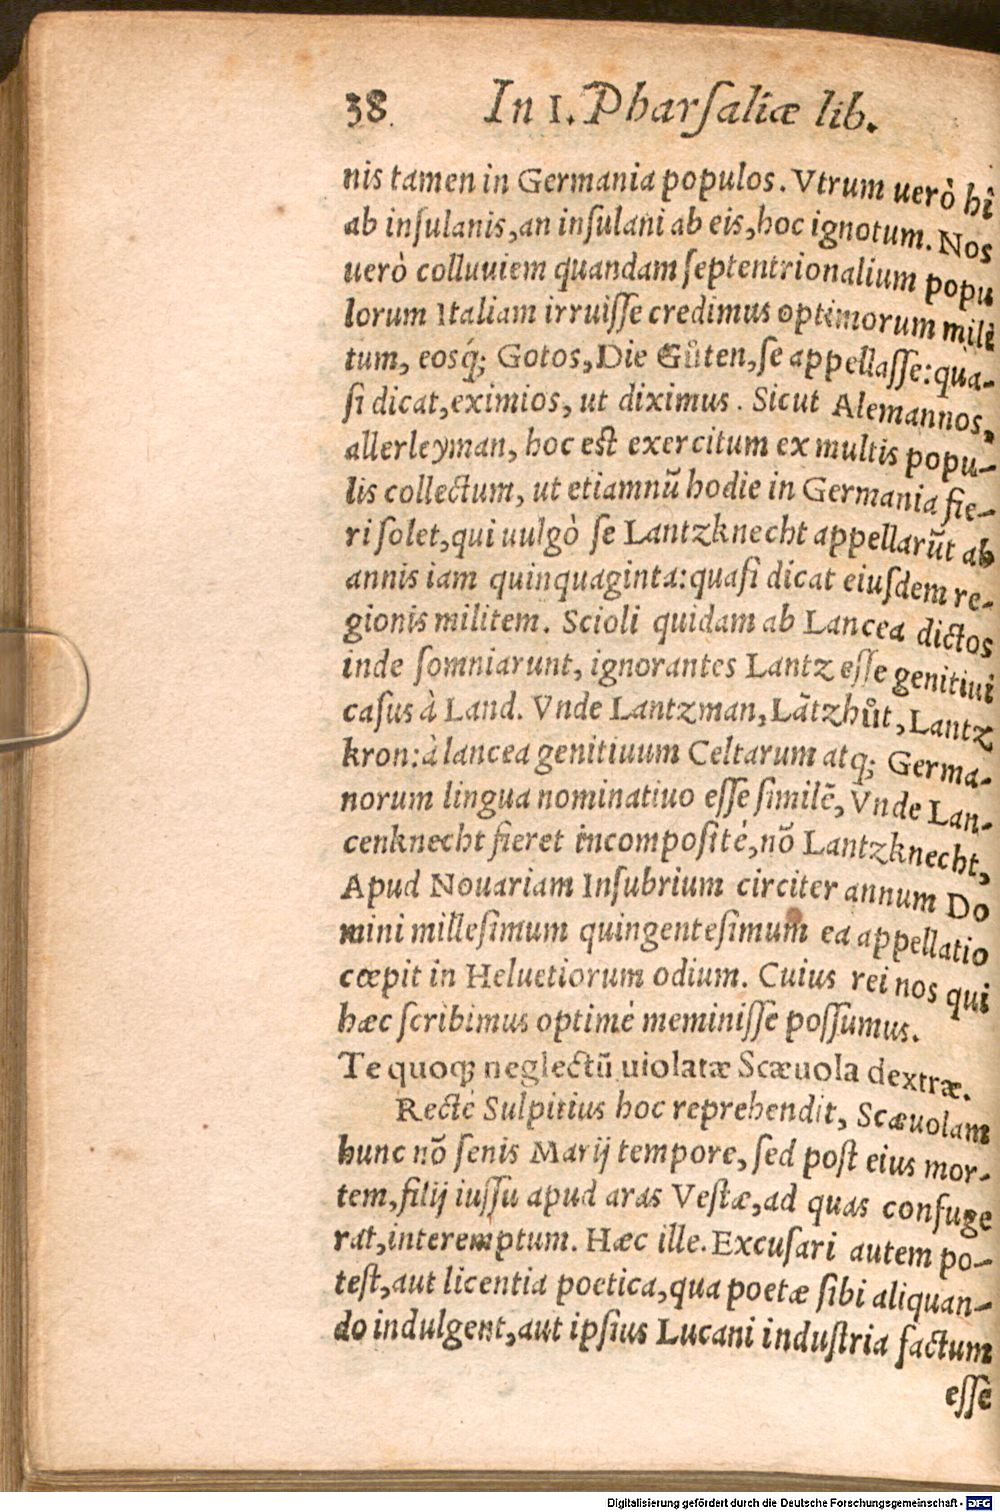 38 In I. Pharſaliæ lib.
nis tamen in Germania populos. Vtrum uerò hi
ab inſulanis, an inſulani ab eis, hoc ignotum. Nos
uerò colluuiem quandam ſeptentrionalium popu
lorum Italiam irruiſſe credimus optimorum mili
tum, eosq́; Gotos, Die Gůten, ſe appellaſſe: qua-
ſi dicat, eximios, ut diximus. Sicut Alemannos,
allerleyman, hoc est exercitum ex multis popu-
lis collectum, ut etiamnũ hodie in Germania fie-
ri ſolet, qui uulgò ſe Lantzknecht appellarũt ab
annis iam quinquaginta: quaſi dicat eiuſdem re-
gionis militem. Scioli quidam ab Lancea dictos
inde ſomniarunt, ignorantes Lantz eſſe genitiui
caſus à Land. Vnde Lantzman, Lãtzhůt, Lantz
kron: à lancea genitiuum Celtarum atq; Germa-
norum lingua nominatiuo eſſe ſimilẽ, Vnde Lan-
cenknecht fieret incompoſitè, nõ Lantzknecht,
Apud Nouariam Inſubrium circiter annum Do
mini milleſimum quingenteſimum ea appellatio
cœpit in Heluetiorum odium. Cuius rei nos qui
hæc ſcribimus optimè meminiſſe poſſumus.
Te quoq; neglectũ uiolatæ Scæuola dextræ.
Rectè Sulpitius hoc reprehendit, Scæuolam
hunc nõ ſenis Marij tempore, ſed poſt eius mor-
tem, filij iuſſu apud aras Veſtæ, ad quas confuge
rat, interemptum. Hæc ille. Excuſari autem po-
teſt, aut licentia poetica, qua poetæ ſibi aliquan-
do indulgent, aut ipſius Lucani induſtria factum
eſſe
Digitalisierung gefördert durch die Deutsche Forschungsgemeinschaft - DFG